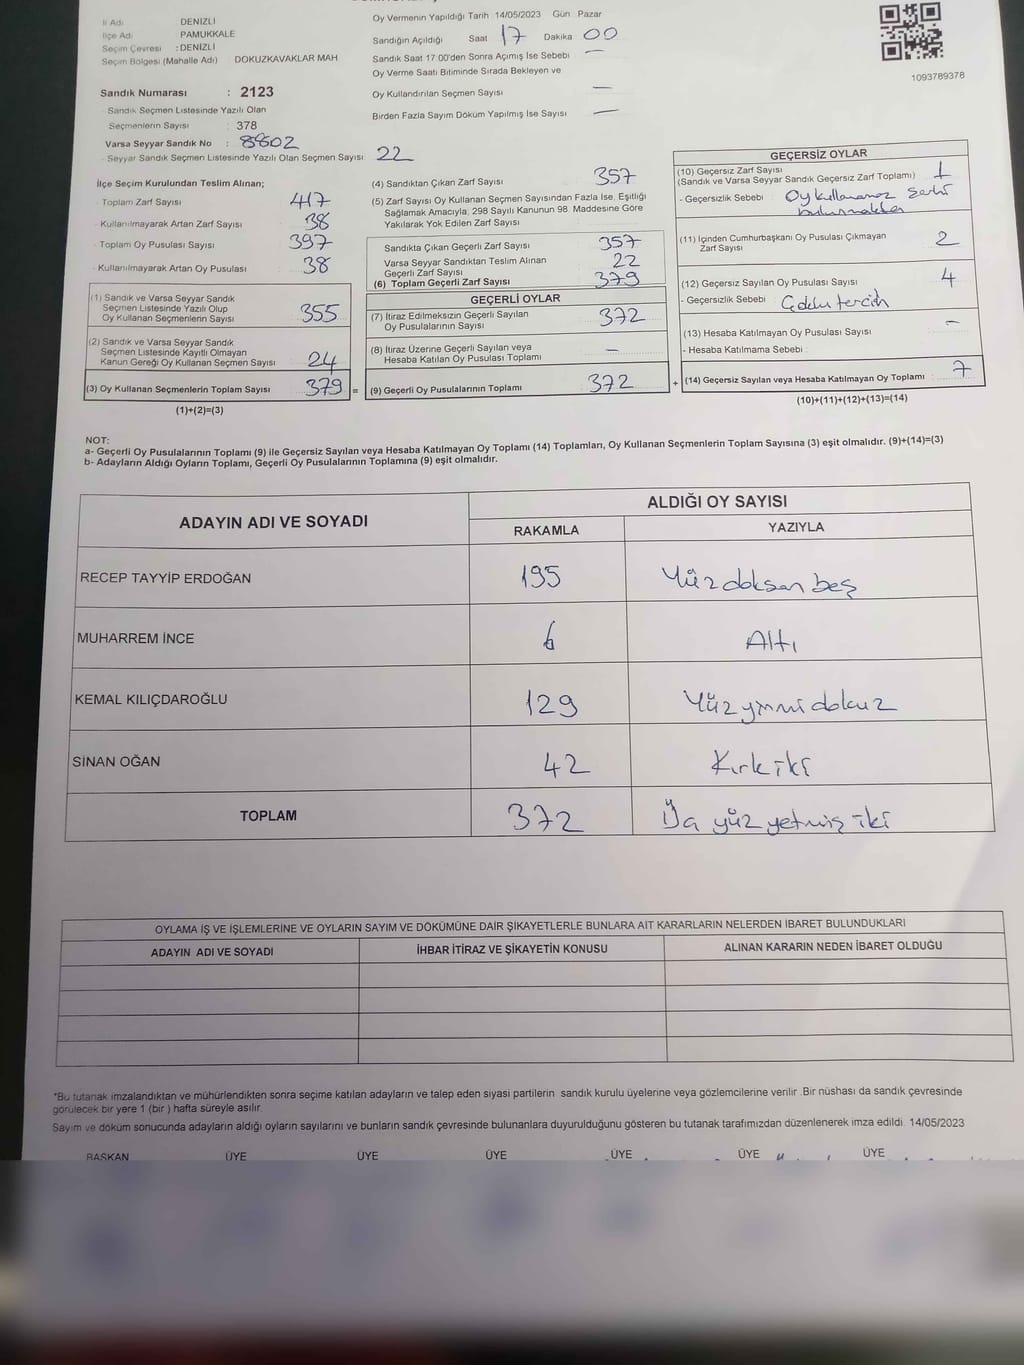 İl Adı DENİZLİ
İlçe Adı PAMUKKALE
Seçim Çevresi : DENİZLİ
Seçim Bölgesi (Mahalle Adı) DOKUZKAVAKLAR MAH
Sandık Numarası : 2123
Sandık Seçmen Listesinde Yazılı Olan
Seçmenlerin Sayısı : 378
Varsa Seyyar Sandık No : 8802
Seyyar Sandık Seçmen Listesinde Yazılı Olan Seçmen Sayısı 22
Oy Vermenin Yapıldığı Tarih 14/05/2023 Gün Pazar
Sandığın Açıldığı Saat 17 Dakika 00
Sandık Saat 17:00'den Sonra Açımış İse Sebebi —
Oy Verme Saati Bitiminde Sırada Bekleyen ve
Oy Kullandırılan Seçmen Sayısı —
Birden Fazla Sayım Döküm Yapılmış İse Sayısı —
1093789378
İlçe Seçim Kurulundan Teslim Alınan;
- Toplam Zarf Sayısı 417
- Kullanılmayarak Artan Zarf Sayısı 38
- Toplam Oy Pusulası Sayısı 397
- Kullanılmayarak Artan Oy Pusulası 38
(1) Sandık ve Varsa Seyyar Sandık
Seçmen Listesinde Yazılı Olup
Oy Kullanan Seçmenlerin Sayısı 355
(2) Sandık ve Varsa Seyyar Sandık
Seçmen Listesinde Kayıtlı Olmayan
Kanun Gereği Oy Kullanan Seçmen Sayısı 24
(3) Oy Kullanan Seçmenlerin Toplam Sayısı 379 =
(1)+(2)=(3)
(4) Sandıktan Çıkan Zarf Sayısı 357
(5) Zarf Sayısı Oy Kullanan Seçmen Sayısından Fazla İse, Eşitliği
Sağlamak Amacıyla, 298 Sayılı Kanunun 98. Maddesine Göre
Yakılarak Yok Edilen Zarf Sayısı
Sandıkta Çıkan Geçerli Zarf Sayısı 357
Varsa Seyyar Sandıktan Teslim Alınan
Geçerli Zarf Sayısı 22
(6) Toplam Geçerli Zarf Sayısı 379
GEÇERLİ OYLAR
(7) İtiraz Edilmeksizin Geçerli Sayılan
Oy Pusulalarının Sayısı 372
(8) İtiraz Üzerine Geçerli Sayılan veya
Hesaba Katılan Oy Pusulası Toplamı —
(9) Geçerli Oy Pusulalarının Toplamı 372 +
GEÇERSİZ OYLAR
(10) Geçersiz Zarf Sayısı
(Sandık ve Varsa Seyyar Sandık Geçersiz Zarf Toplamı) 1
- Geçersizlik Sebebi : Oy kullanamaz Şerhi
bulunmakta
(11) İçinden Cumhurbaşkanı Oy Pusulası Çıkmayan
Zarf Sayısı 2
(12) Geçersiz Sayılan Oy Pusulası Sayısı 4
- Geçersizlik Sebebi : Çoklu tercih
(13) Hesaba Katılmayan Oy Pusulası Sayısı —
- Hesaba Katılmama Sebebi :
(14) Geçersiz Sayılan veya Hesaba Katılmayan Oy Toplamı 7
(10)+(11)+(12)+(13)=(14)
NOT:
a- Geçerli Oy Pusulalarının Toplamı (9) ile Geçersiz Sayılan veya Hesaba Katılmayan Oy Toplamı (14) Toplamları, Oy Kullanan Seçmenlerin Toplam Sayısına (3) eşit olmalıdır. (9)+(14)=(3)
b- Adayların Aldığı Oyların Toplamı, Geçerli Oy Pusulalarının Toplamına (9) eşit olmalıdır.
ADAYIN ADI VE SOYADI ALDIĞI OY SAYISI
RAKAMLA YAZIYLA
RECEP TAYYİP ERDOĞAN 195 Yüz doksan beş
MUHARREM İNCE 6 Altı
KEMAL KILIÇDAROĞLU 129 Yüz yirmi dokuz
SİNAN OĞAN 42 Kırk iki
TOPLAM 372 Üç yüz yetmiş iki
OYLAMA İŞ VE İŞLEMLERİNE VE OYLARIN SAYIM VE DÖKÜMÜNE DAİR ŞİKAYETLERLE BUNLARA AİT KARARLARIN NELERDEN İBARET BULUNDUKLARI
ADAYIN ADI VE SOYADI İHBAR İTİRAZ VE ŞİKAYETİN KONUSU ALINAN KARARIN NEDEN İBARET OLDUĞU
*Bu tutanak imzalandıktan ve mühürlendikten sonra seçime katılan adayların ve talep eden siyasi partilerin sandık kurulu üyelerine veya gözlemcilerine verilir. Bir nüshası da sandık çevresinde
görülecek bir yere 1 (bir ) hafta süreyle asılır.
Sayım ve döküm sonucunda adayların aldığı oyların sayılarını ve bunların sandık çevresinde bulunanlara duyurulduğunu gösteren bu tutanak tarafımızdan düzenlenerek imza edildi. 14/05/2023
BAŞKAN ÜYE ÜYE ÜYE ÜYE ÜYE ÜYE